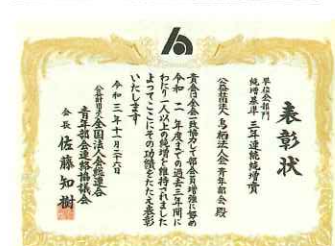 表彰状
単位会部門
純増基準 三年連続純増賞
公益社団法人 鳥栖法人会 青年部会 殿
貴会は全会一致協力して部会員増強に努め
令和二年度までの過去三年間に
わたり一人以上の純増を維持されました
よってここにその功績をたたえ表彰
いたします
令和三年十一月二十六日
公益財団法人 全国法人会総連合
青年部会連絡協議会
会長 佐藤知樹